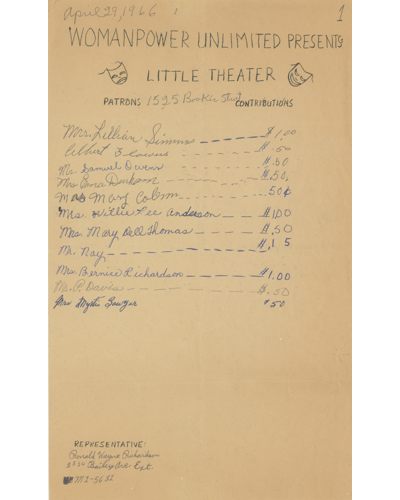 April 29, 1966
1
WOMANPOWER UNLIMITED PRESENTS
LITTLE THEATER
PATRONS 1525 Booker Street CONTRIBUTIONS
Mrs. Lillian Simms $1.00
Albert $.50
Mr. Samuel Owens $.50
Mrs. Dunham $.50
Mrs Mary 50¢
Mrs. Willie Lee Anderson $1.00
Mrs. Mary Dell Thomas $.50
Mr. Nay $.15
Mrs. Bernice Richardson $1.00
Mr. P. Davis $.50
Mrs Myrtle Sawyer $.50
REPRESENTATIVE:
Ronald Wayne Richardson
Bailey Ave. Ext.